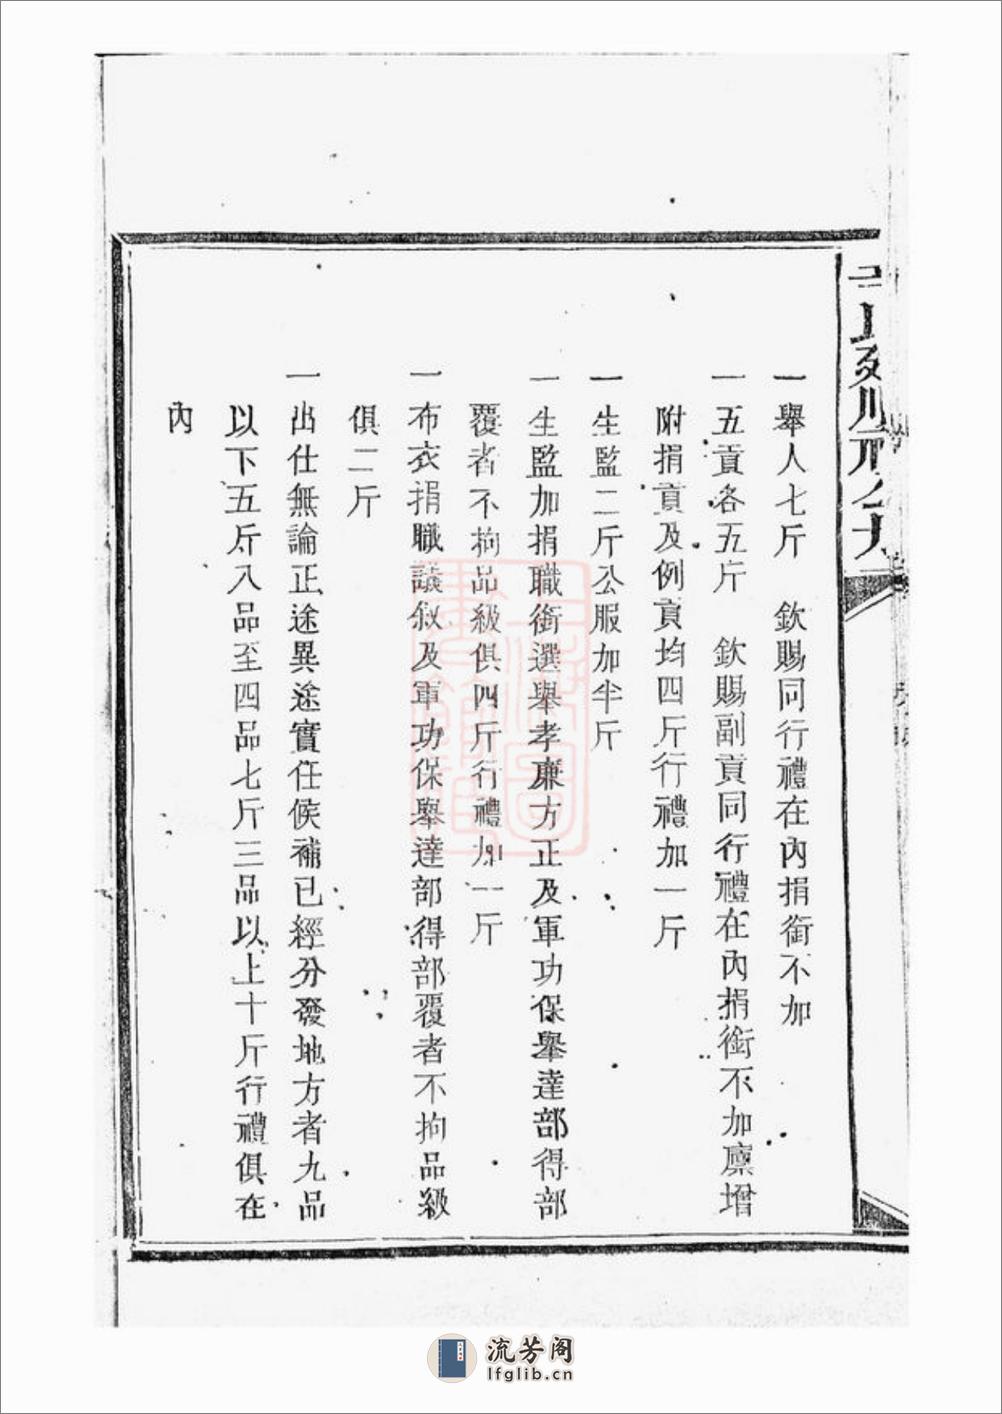 一舉人七斤　欽賜同行禮在內捐銜不加
一五貢各五斤　欽賜副貢同行禮在內捐銜不加廩增
附捐貢及例貢均四斤行禮加一斤
一生監二斤公服加半斤
一生監加捐職銜選舉孝廉方正及軍功保舉達部得部
覆者不拘品級俱四斤行禮加一斤
一布衣捐職議叙及軍功保舉達部得部覆者不拘品級
俱二斤
一出仕無論正途異途實任侯補已經分發地方者九品
以下五斤八品至四品七斤三品以上十斤行禮俱在
內
上海圖
書館藏
流芳阁
lfglib.cn